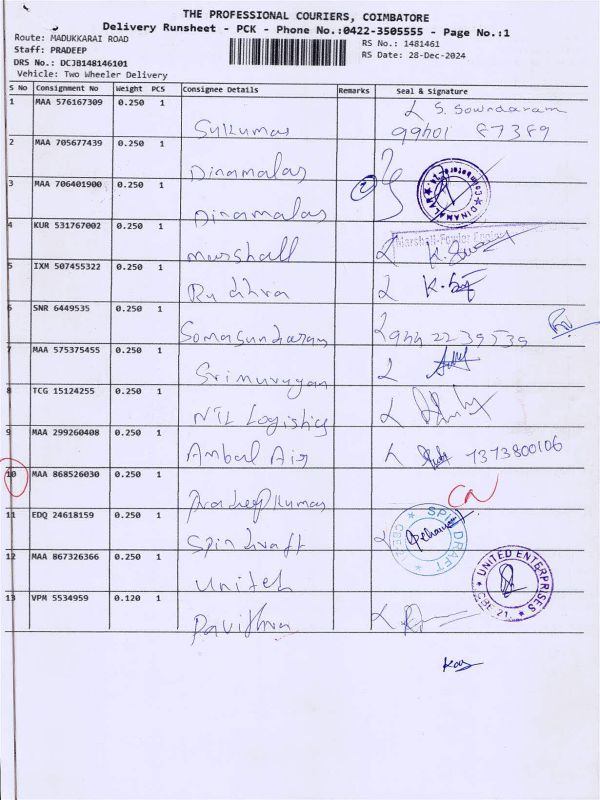 THE PROFESSIONAL COURIERS, COIMBATORE
Delivery Runsheet - PCK - Phone No.:0422-3505555 - Page No.:1
Route: MADUKKARAI ROAD
RS No.: 1481461
Staff: PRADEEP
RS Date: 28-Dec-2024
DRS No.: DCJB148146101
Vehicle: Two Wheeler Delivery
S No Consignment No Weight PCS Consignee Details Remarks Seal & Signature
1 MAA 576167309 0.250 1 S. Sowndaram
Sukumar 99401 87389
2 MAA 705677439 0.250 1
Dinamalar
3 MAA 706401900 0.250 1 2 DINAMALAR
Dinamalar
4 KUR 531767002 0.250 1
Marshall
5 IXM 507455322 0.250 1
Rudhra
6 SNR 6449535 0.250 1
Somasundaram 9442239539
7 MAA 575375455 0.250 1
Srimurugan
8 TCG 15124255 0.250 1
NTL Logistics
9 MAA 299260408 0.250 1
Ambal Air 7373800106
10 MAA 868526030 0.250 1
Pradeep Kumar CN
11 EDQ 24618159 0.250 1 SPINDRAFT
Spindraft
12 MAA 867326366 0.250 1 UNITED ENTERPRISES CBE 21.
United
13 VPM 5534959 0.120 1
Pavithra